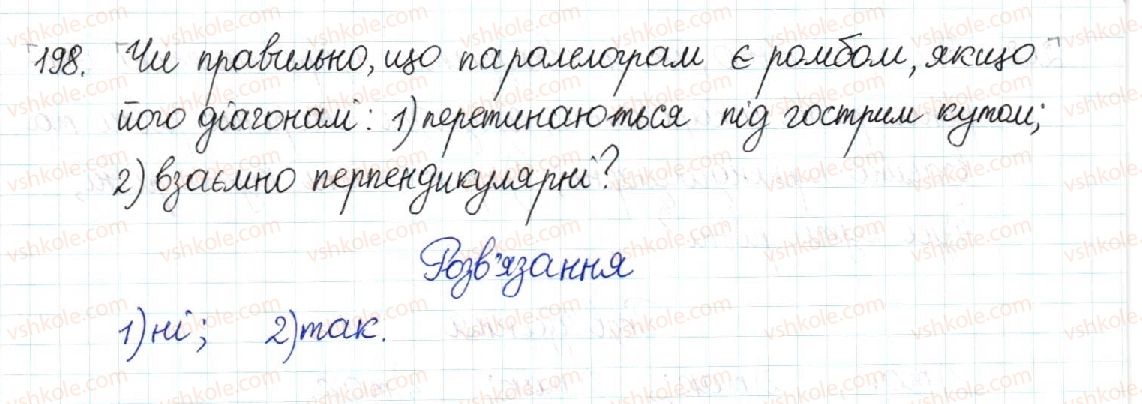 198. Чи правильно, що паралелограм є ромбом, якщо
його діагоналі: 1) перетинаються під гострим кутом;
2) взаємно перпендикулярні?
Розв'язання
1) ні; 2) так.